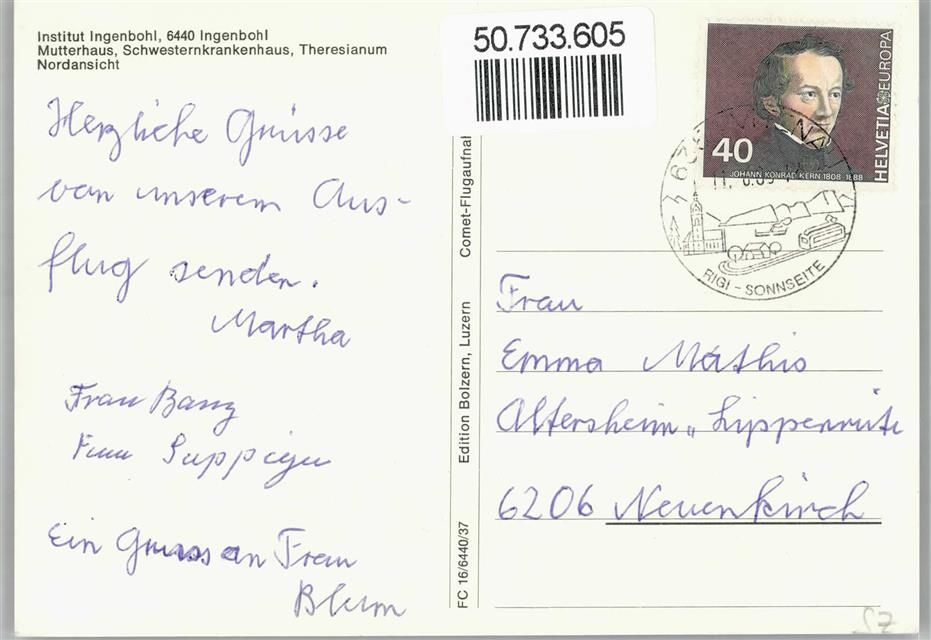 Institut Ingenbohl, 6440 Ingenbohl
Mutterhaus, Schwesternkrankenhaus, Theresianum
Nordansicht
50.733.605
Herzliche Grüsse
von unserem Aus-
flug senden.
Martha
Frau Banz
Frau Suppiger
Ein Gruss an Frau
Blum
FC 16/6440/37
Edition Bolzern, Luzern
Comet-Flugaufnah
40
HELVETIA EUROPA
JOHANN KONRAD KERN 1808-1888
RIGI - SONNSEITE
Frau
Emma Mathis
Altersheim „Lippenrüti
6206 Neuenkirch
SZ